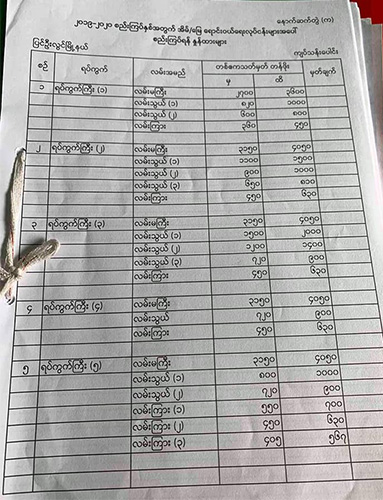 နောက်ဆက်တွဲ (က)
၂၀၁၉-၂၀၂၀ စည်းကြပ်နှစ်အတွက် အိမ်/မြေ ရောင်းဝယ်ရေးလုပ်ငန်းများအပေါ်
စည်းကြပ်ရန် နှုန်းထားများ
ပြင်ဦးလွင်မြို့နယ် ကျပ်သန်းပေါင်း
စဉ် ရပ်ကွက် လမ်းအမည် တစ်ဧကသတ်မှတ် တန်ဖိုး မှတ်ချက်
မှ ထိ
၁ ရပ်ကွက်ကြီး (၁) လမ်းမကြီး ၂၇၀၀ ၃၆၀၀
လမ်းသွယ် (၁) ၈၂၀ ၁၀၀၀
လမ်းသွယ် (၂) ၆၀၀ ၈၀၀
လမ်းကြား ၃၆၀ ၄၅၀
၂ ရပ်ကွက်ကြီး (၂) လမ်းမကြီး ၃၁၅၀ ၄၀၅၀
လမ်းသွယ် (၁) ၁၁၀၀ ၁၅၀၀
လမ်းသွယ် (၂) ၉၀၀ ၁၀၀၀
လမ်းသွယ် (၃) ၆၅၀ ၈၁၀
လမ်းကြား ၄၅၀ ၆၃၀
၃ ရပ်ကွက်ကြီး (၃) လမ်းမကြီး ၃၁၅၀ ၄၀၅၀
လမ်းသွယ် (၁) ၁၅၀၀ ၂၀၀၀
လမ်းသွယ် (၂) ၁၂၀၀ ၁၄၀၀
လမ်းသွယ် (၃) ၇၂၀ ၉၀၀
လမ်းကြား ၄၅၀ ၆၃၀
၄ ရပ်ကွက်ကြီး (၄) လမ်းမကြီး ၃၁၅၀ ၄၀၅၀
လမ်းသွယ် ၇၂၀ ၉၀၀
လမ်းကြား ၄၅၀ ၆၃၀
၅ ရပ်ကွက်ကြီး (၅) လမ်းမကြီး ၃၁၅၀ ၄၀၅၀
လမ်းသွယ် (၁) ၈၀၀ ၁၀၀၀
လမ်းသွယ် (၂) ၇၂၀ ၉၀၀
လမ်းကြား (၁) ၅၅၀ ၇၀၀
လမ်းကြား (၂) ၄၅၀ ၆၃၀
လမ်းကြား (၃) ၄၀၅ ၅၆၇